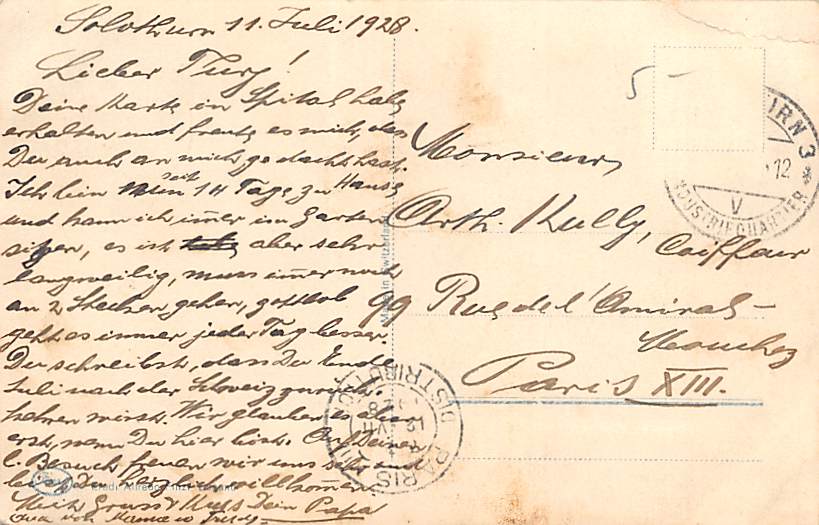 Solothurn 11. Juli 1928.
Lieber Turg!
Deine Karte im Spital habe
erhalten und freute es mich, das
Du auch an mich gedacht hast.
Ich bin nun seit 14 Tage zu Hause
und kann ich immer im Garten
sitzen, es ist aber sehr
langweilig, muss immer noch
an 2 Stecken gehen, gottlob
geht es immer jeder Tag besser.
Du schreibst, dass Du Ende
Juli nach der Schweiz zurück
kehren wirst. Wir glauben es aber
erst, wenn Du hier bist. Auf Deinen
l. Besuch freuen wir uns sehr und
Du herzlich willkommen
Mit Gruss & Kuss Dein Papa
von Mama
5 –
Monsieur
Arth. Kully, Coiffeur
99 Rue de l'Amiral-
Mouchez
Paris XIII.
Made in Switzerland
IRN 3
12
V
INDUSTRIEQUARTIER
PARIS
DISTRIBUTION
12
VII